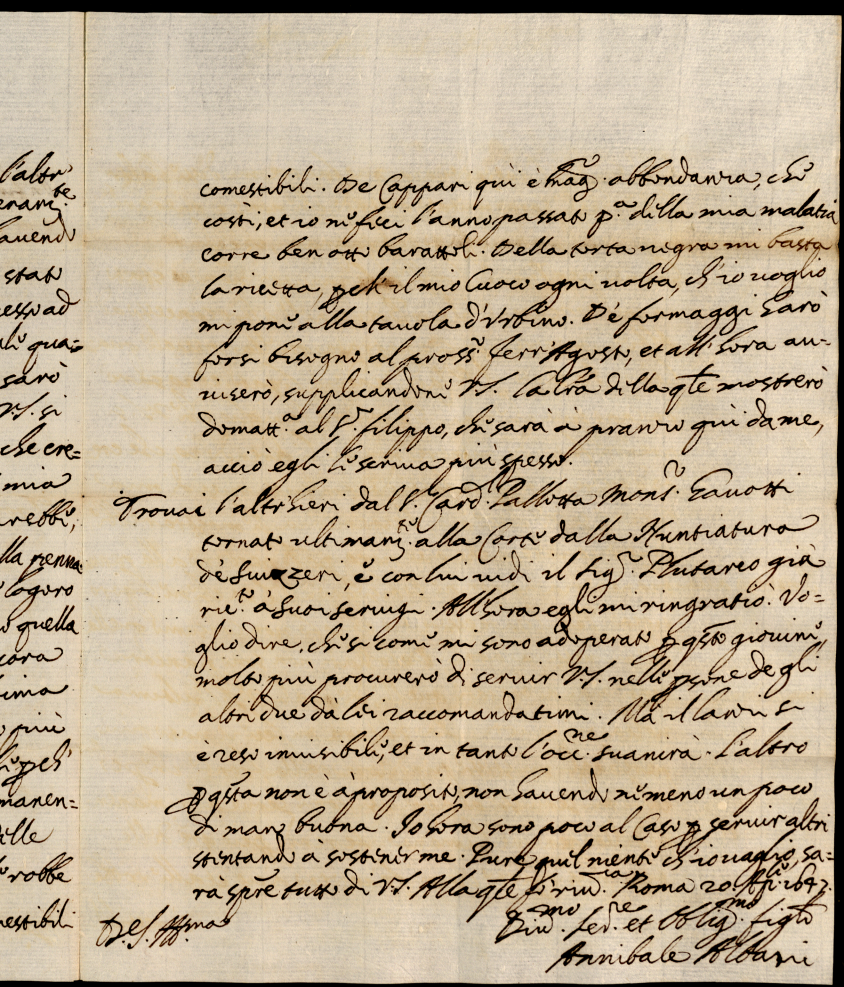 l'altr
enam.te
havend
stato
esso ad
qua=
sarò
V.S. si
che cre=
mia
arebbe,
lla penna
logoro
quella
cora
sima
più
pch'
manen=
delle
robbe
mestibili
comestibili. De Cappari quì è mag.r abbondanza, che
costì, et io ne feci l'anno passato p.a della mia malatia
corre ben otto barattoli. Della torta negra mi basta
la ricetta, pch' il mio Cuoco ogni volta, ch'io voglio
mi pone alla tavola d'Urbino. De formaggi harò
forsi bisogno al pross.o ferr'Agosto, et all'hora au=
viserò, supplicandone V.S. la lra della qle mostrerò
domatt.a al S.r filippo, che sarà à pranzo qui da me,
acciò egli le scriva più spesso.
Trovai l'altr'hieri dal S.r Card. Pallotta Mons.r Gavotti
tornato ultimam.te alla Corte dalla Nuntiatura
de Suizzeri, e con lui vidi il Sig.r Plutarco già
ric.to à suoi servigi. All'hora egli mi ringratiò. Vo=
glio dire, che si come mi sono adoperato p qsto giovine,
molto più procurerò di servir V.S. nelle psone degli
altri due da lei raccomandatimi. Mà il Lanci si
è reso invisibile, et in tanto l'occ.ne svanirà. L'altro
p qsta non è à proposito, non havend nemeno un poco
di mano buona. Io hora sono poco al Caso p servir altri
stentando à sostenerme. Pure quel niente ch'io vaglio, sa=
rà spre tutto di V.S. Alla qle fo riu.za Roma 20. Apr.le 1647.
Di V.S. Ill.ma
Diu.mo Ser.re et Oblig.mo figlo
Annibale Albani